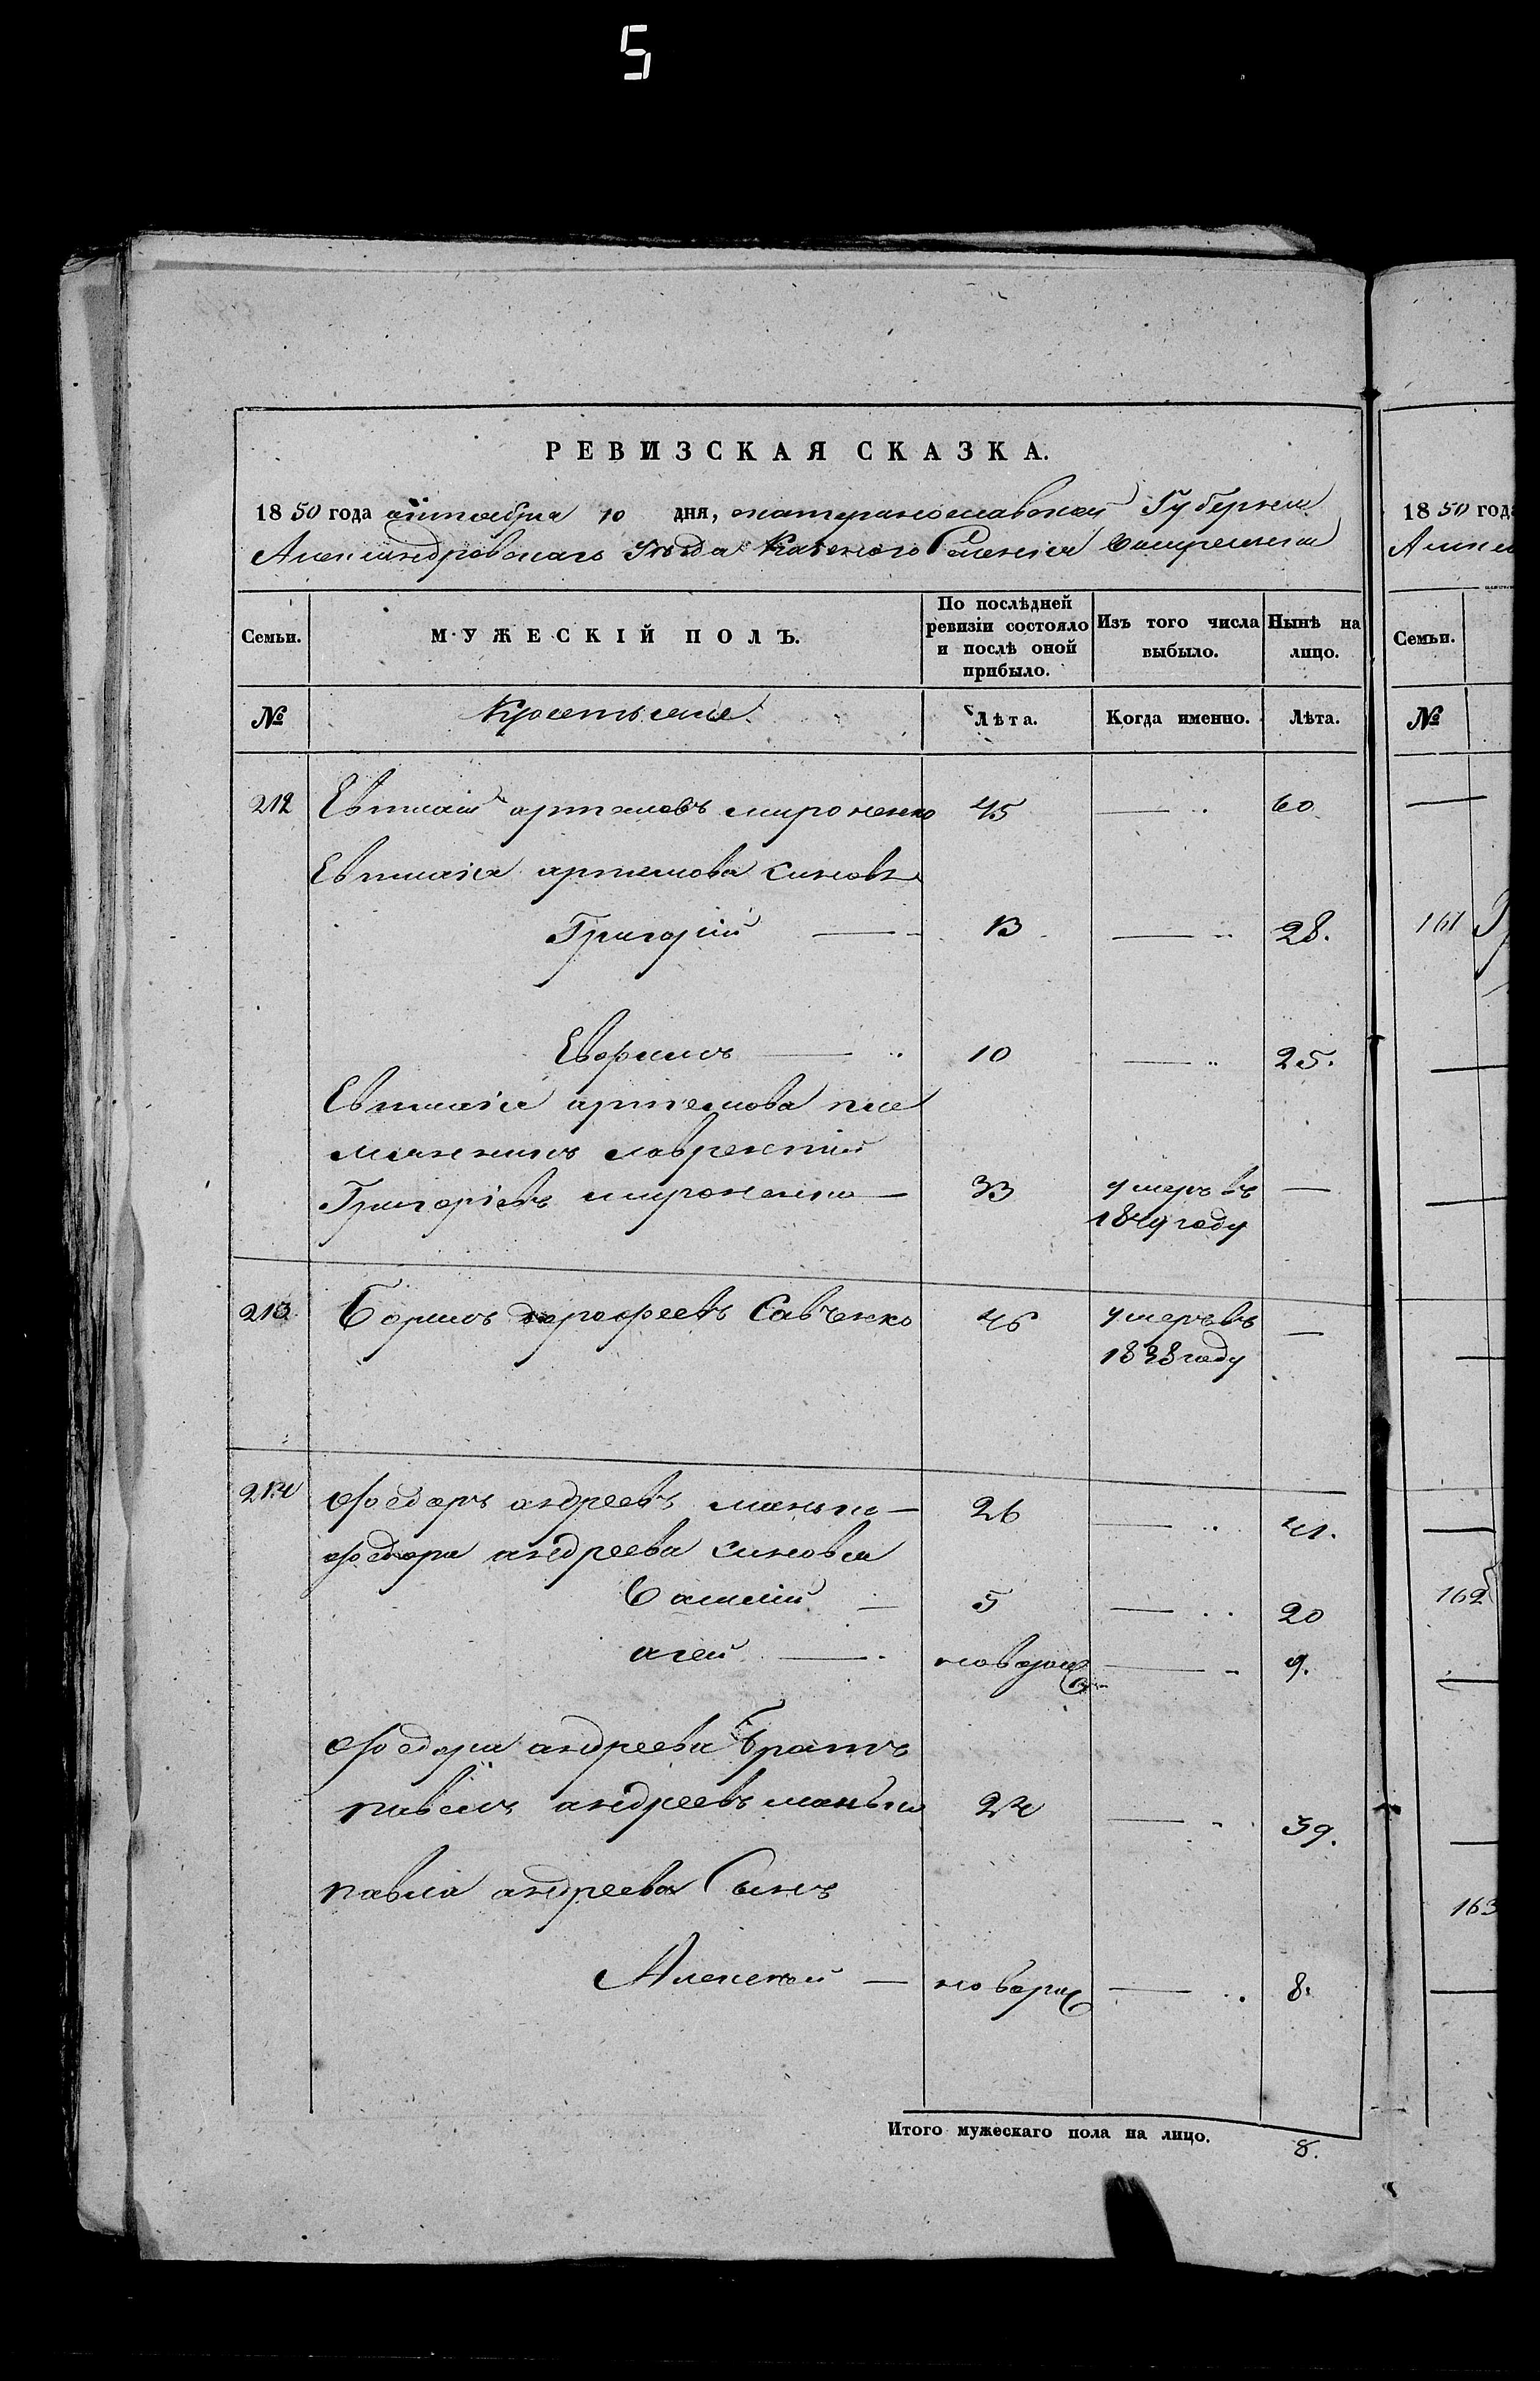 5
РЕВИЗСКАЯ СКАЗКА.
1850 года октября 10 дня, екатеринославской Губернии
Александровскаго Уѣзда Казенного Селенія
Семьи.
МУЖЕСКІЙ ПОЛЪ.
По послѣдней ревизіи состояло и послѣ оной прибыло.
Изъ того числа выбыло.
Нынѣ на лицо.
№ Крестьяне. Лѣта. Когда именно. Лѣта.
212 Евтихій артемовъ мироненко 45 — 60
Евтихія артемова синовья
Григорій — 13 — 28.
Ефримъ — 10 — 25.
Евтихія артемова пле
мянникъ лаврентий
Григоріевъ мироненко — 33 умеръ въ —
1849 году
213 дорофеевъ Савченко 46 умеръ въ —
1838 году
214 федоръ андреевъ манько — 26 — 41.
федора андреева синовья
Василий — 5 — 20
агей — новорож — 9.
федора андреева братъ
павелъ андреевъ манько 24 — 39.
павла андреева Сынъ
Алексей — новорож — 8.
Итого мужескаго пола на лицо. 8.
1850 года
Семьи.
№
161
162
163